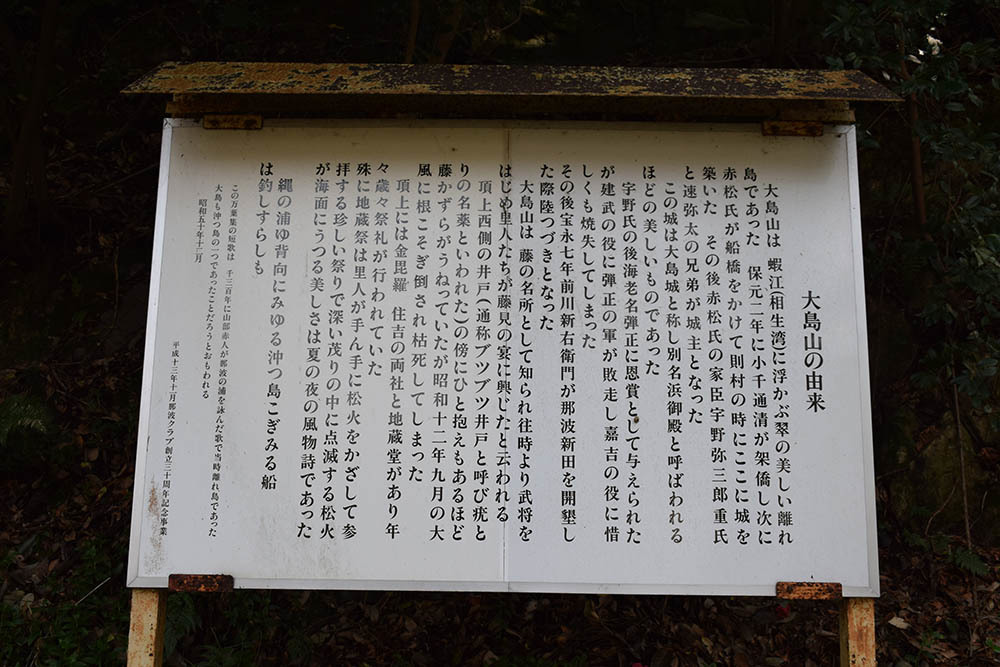 大島山の由来
大島山は 蝦江(相生湾)に浮かぶ翠の美しい離れ
島であった 保元二年に小千通清が架僑し次に
赤松氏が船橋をかけて則村の時にここに城を
築いた その後赤松氏の家臣宇野弥三郎重氏
と速弥太の兄弟が城主となった
この城は大島城と称し別名浜御殿と呼ばわれる
ほどの美しいものであった
宇野氏の後海老名弾正に恩賞として与えられた
が建武の役に弾正の軍が敗走し嘉吉の役に惜
しくも焼失してしまった
その後宝永七年前川新右衛門が那波新田を開墾し
た際陸つづきとなった
大島山は 藤の名所として知られ往時より武将を
はじめ里人たちが藤見の宴に興じたと云われる
頂上西側の井戸(通称ブツブツ井戸と呼び疣と
りの名薬といわれた)の傍にひと抱えもあるほど
藤かずらがうねっていたが昭和十二年九月の大
風に根こそぎ倒され枯死してしまった
頂上には金毘羅 住吉の両社と地蔵堂があり年
々歳々祭礼が行われていた
殊に地蔵祭は里人が手ん手に松火をかざして参
拝する珍しい祭りで深い茂りの中に点滅する松火
が海面にうつる美しさは夏の夜の風物詩であった
縄の浦ゆ背向にみゆる沖つ島こぎみる船
は釣しすらしも
この万葉集の短歌は 千三百年に山部赤人が那波の浦を詠んだ歌で当時離れ島であった
大島も沖つ島の一つであったことだろうとおもわれる
昭和五十年十二月
平成十三年十二月那波クラブ創立三十周年記念事業